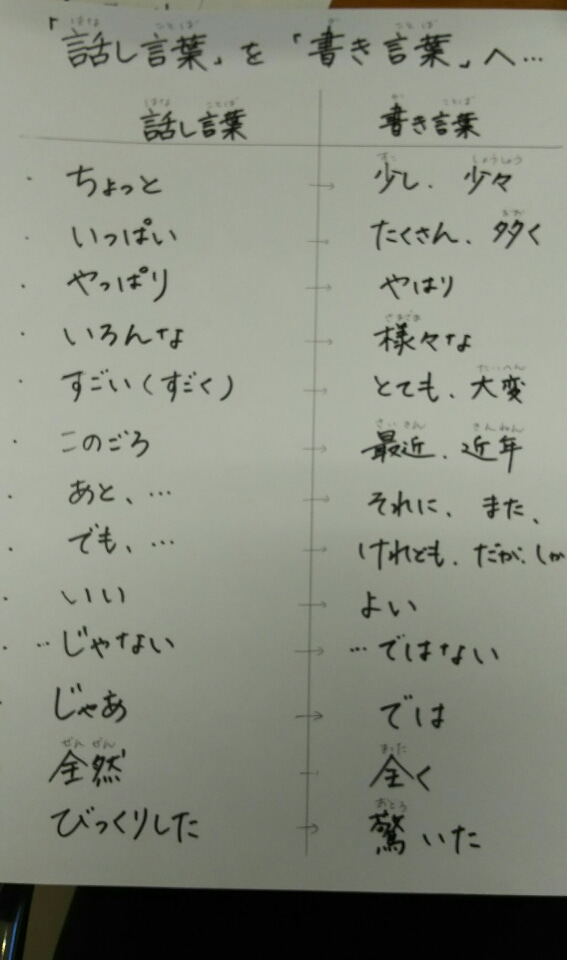 「話し言葉」を「書き言葉」へ…
話し言葉 書き言葉
・ ちょっと → 少し、少々
・ いっぱい → たくさん、多く
・ やっぱり → やはり
・ いろんな → 様々な
・ すごい(すごく) → とても、大変
・ このごろ → 最近、近年
・ あと、… → それに、また、
・ でも、… → けれども、だが、しか
・ いい → よい
・ …じゃない → …ではない
じゃあ → では
全然 → 全く
びっくりした → 驚いた